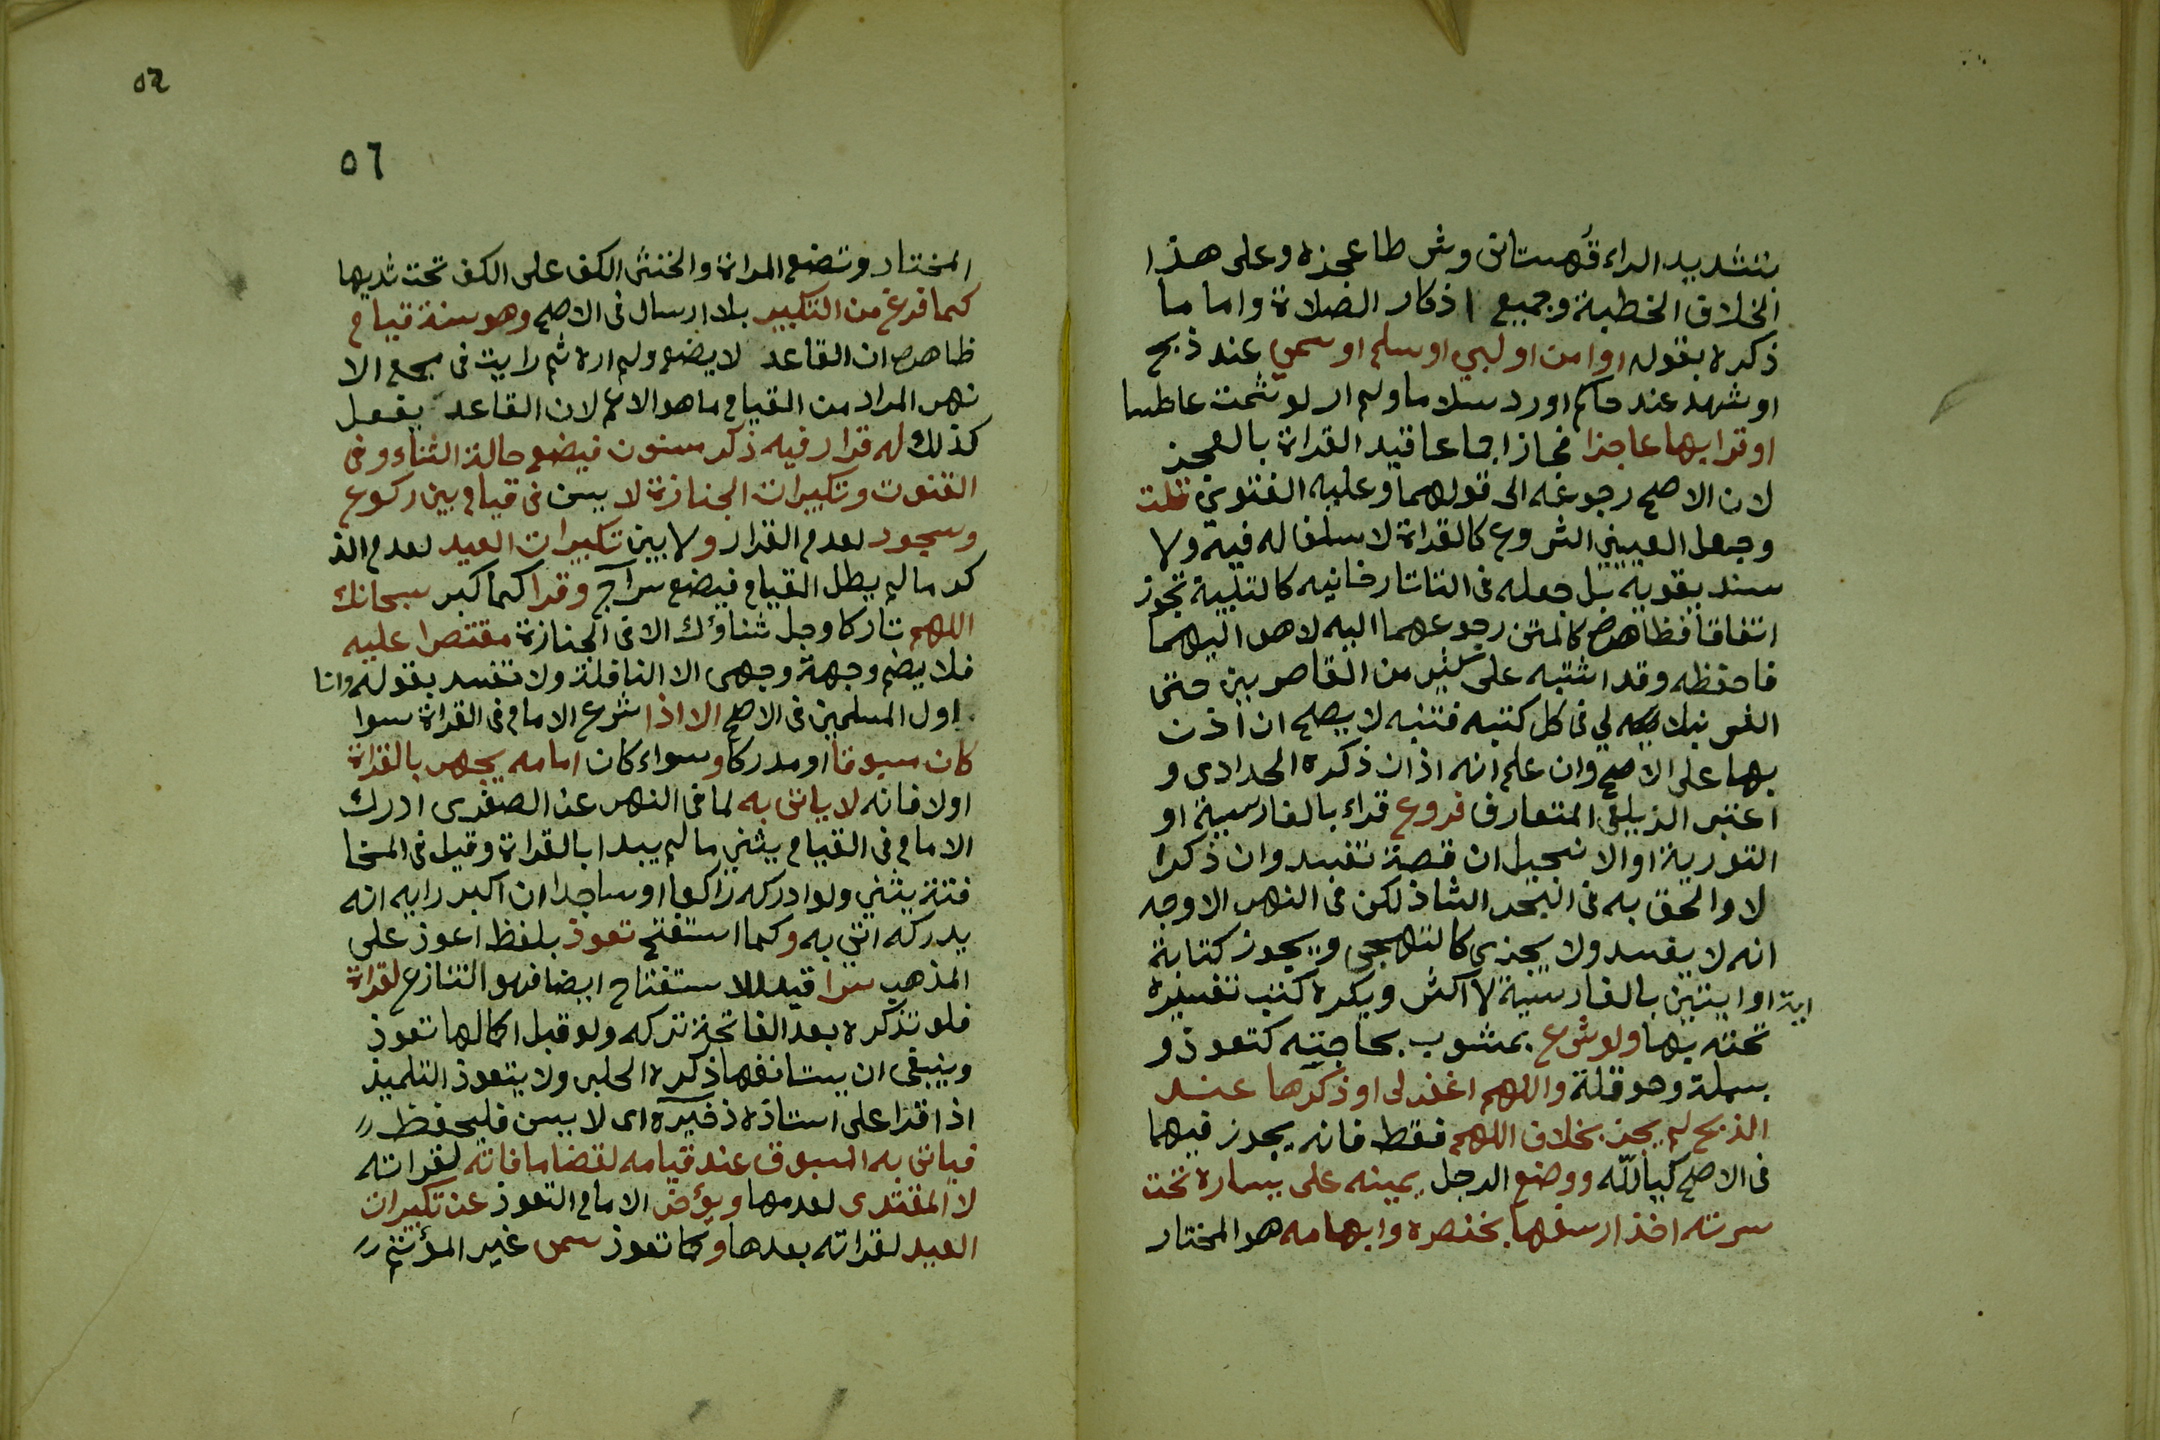 بتشديد الراء قهستانى وشرطا عجزه وعلى هذا
الخلاف الخطبة وجميع اذكار الصلاة واما ما
ذكره بقوله اوامن او لبي او سلم او سمي عند ذبح
او شهد عند حاكم اورد سلاما ولم ار لو شمت عاطسا
او قرا بها عاجزا فجائز اجماعا قيد القراة بالعجز
لان الاصح رجوعه الى قولهما وعليه الفتوي قلت
وجعل العيني الشروع كالقراة لا سلف له فيه ولا
سند يقويه بل جعله فى التاتارخانيه كالتلبية تجوز
اتفاقا فظاهره كالمتن رجوعهما اليه لا هو اليهما
فاحفظه وقد اشتبه على كثير من القاصرين حتى
الشرنبلالي فى كل كتبه فتنبه لا يصح ان اذن
بها على الاصح وان علم انه اذان ذكره الحدادى و
اعتبر الزيلعى المتعارف فروع قراء بالفارسية او
التورية او الانجيل ان قصة تفسد وان ذكرا
لا والحق به فى البحر الشاذ لكن فى النهر الاوجه
انه لا يفسد ولا يجزى كالتهجى ويجوز كتابة
اية او ايتين بالفارسية لا اكثر ويكره كتب تفسيره
تحته بها ولو شرع بمشوب بحاجته كتعوذ و
بسملة وحوقلة واللهم اغفر لى او ذكرها عند
الذبح لم يجز بخلاف اللهم فقط فانه يجوز فيهما
فى الاصح كيا الله ووضع الرجل يمينه على يساره تحت
سرته اخذا رسغها بخنصره وابهامه هو المختار
٥٦
٥٦
المختار وتضع المراة والخنثى الكف على الكف تحت ثديها
كما فرغ من التكبير بلا ارسال فى الاصح وهو سنة قيام
ظاهره ان القاعد لا يضع ولم اره ثم رايت فى مجمع الا
نهر المراد من القيام ما هو الاعم لان القاعد يفعل
كذلك له قرار فيه ذكر مسنون فيضع حالة الثناء وفى
القنوت وتكبيرات الجنازة لا يسن فى قيام بين ركوع
وسجود لعدم القرار ولا بين تكبيرات العيد لعدم الذ
كر ما لم يطل القيام فيضع سراج وقرا كما كبر سبحانك
اللهم تاركا وجل ثناؤك الا فى الجنازة مقتصرا عليه
فلا يضم وجهت وجهى الا النافلة ولا تفسد بقوله وانا
اول المسلمين فى الاصح الا اذا شرع الامام فى القراة سوا
كان مسبوقا او مدركا وسواء كان امامه يجهر بالقراة
اولا فانه لا ياتى به لما فى النهر عن الصغرى ادرك
الامام فى القيام يثني ما لم يبدا بالقراة وقيل فى المخا
فتة يثني ولو ادركه راكعا او ساجدا ان اكبر رايه انه
يدركه اتى به وكما استفتح تعوذ بلفظ اعوذ على
المذهب سرا قيد للاستفتاح ايضا فهو التنازع لقراة
فلو تذكره بعد الفاتحة تركه ولو قبل اكمالها تعوذ
وينبغى ان يستانفها ذكره الحلبى ولا يتعوذ التلميذ
اذا قرا على استاذه ذخيرة اى لا يسن فليحفظ
فياتى به المسبوق عند قيامه لقضا ما فاته لقراته
لا المقتدى لعدمها ويؤخر الامام التعوذ عن تكبيرات
العيد لقراته بعدها وكما تعوذ سمى غير المؤتم